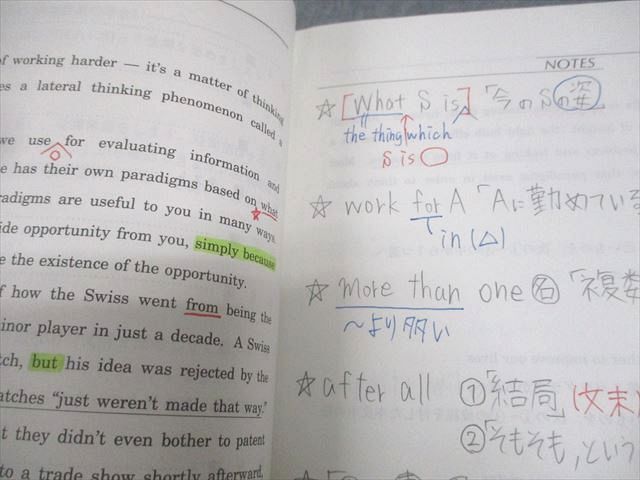 of working harder — it's a matter of thinking
a lateral thinking phenomenon called a
we use for evaluating information and
has their own paradigms based on what
are useful to you in many ways.
opportunity from you, simply because
the existence of the opportunity.
of how the Swiss went from being the
minor player in just a decade. A Swiss
but his idea was rejected by the
"just weren't made that way."
they didn't even bother to patent
to a trade show shortly afterward,
NOTES
☆ [What S is] 「今のSの姿」
the thing which
S is ○
☆ work for A 「Aに勤めている
in (△)
☆ more than one 名 「複数
～より多い
☆ after all ①「結局」(文末)
②「そもそも,という